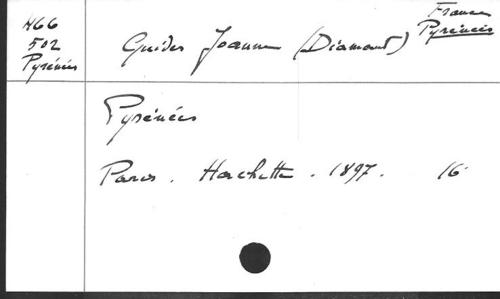 H66
502
Pyrénées
Guides Joanne (Diamant)
France
Pyrénées
Pyrénées
Paris. Hachette. 1897. 16